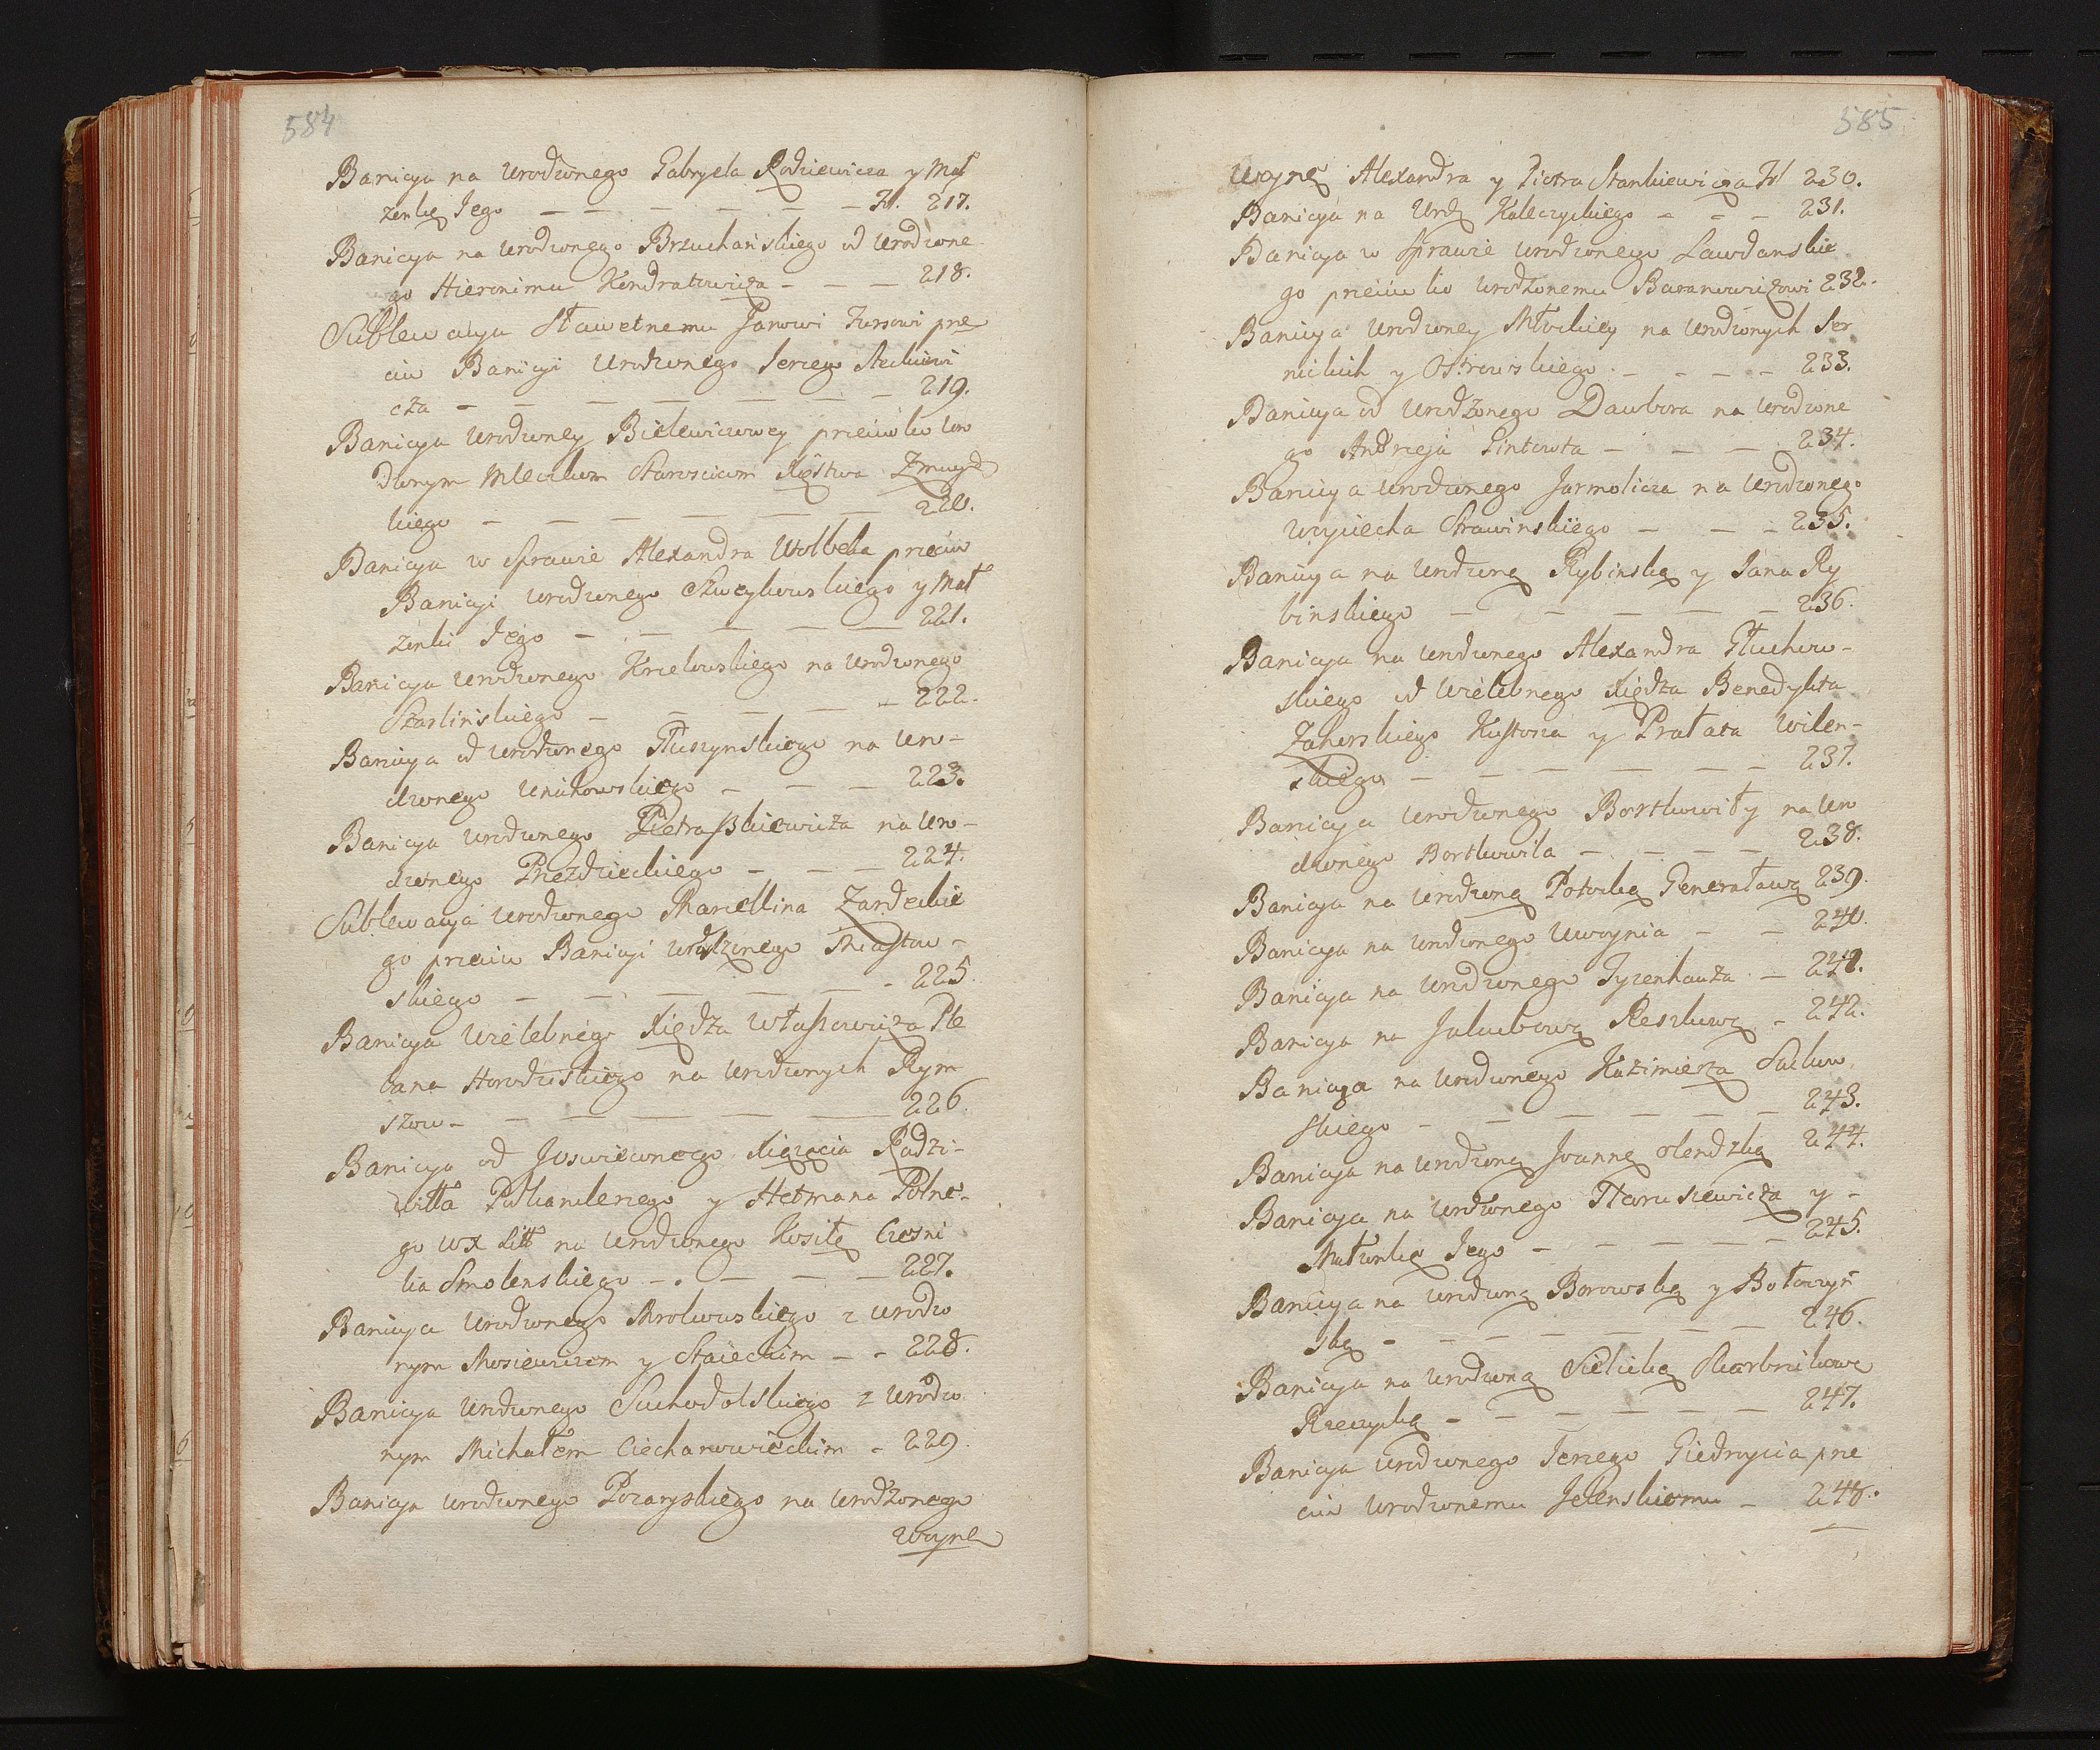 584
Banicya na Urodzonego Gabryela Rodziewicza y Mał
zenkę Jego — — — — — — fol. 217.
Banicya na Urodzonego Brzuchańskiego od Urodzone
go Hieronima Kondratowicza — — — 218.
Sublewacya Sławetnemu Janowi prze
ciw Banicyi Urodzonego Jerzego Steckiewi
cza — — — — — — — 219.
Banicya Urodzoney Bielewiczowey przeciwko Uro
dzonym Mleczkom Starościcom Xięstwa Zmuyd
kiego — — — — — — — 220.
Banicya w Sprawie Alexandra Wolbeka przeciw
Banicyi Urodzonego Szweykowskiego y Mał
zenki Jego — — — — — — 221.
Banicya Urodzonego na Urodzonego
Szarlińskiego — — — — — 222.
Banicya od Urodzonego Głuszynskiego na Uro-
dzonego Unichowskiego — — — 223.
Banicya Urodzonego Pietraszkiewicza na Uro-
dzonego Przezdzieckiego — — — 224.
Sublewacya Urodzonego Marcellina Zardeckie
go przeciw Banicyi Urodzonego Miastow-
skiego — — — — — — 225.
Banicya Wielebnego Xiędza Własowicza Ple
bana Horodziskiego na Urodzonych Rym
szow — — — — — — 226.
Banicya od Joswieconego Xiązęcia Radzi-
wiłła Podkanclerzego y Hetmana Polne-
go WX Litt na Urodzonego Kosiłę Czesni
ka Smolenskiego — — — — 227.
Banicya Urodzonego Mrokowskiego z Urodzo
nym Mosiewiczem y Staieckim — - 228.
Banicya Urodzonego Suchodolskiego z Urodzo
nym Michałem Ciechanowieckim - 229.
Banicya Urodzonego Pozaryskiego na Urodzonego
Woynę
585
Woynę Alexandra y Piotra Stankiewicza fol 230.
Banicya na Urdz Kaleczyckiego - - - 231.
Banicya w Sprawie Urodzonego Lawdanskie
go przeciwko Urodzonemu Baranowiczowi 232.
Banicya Urodzoney Młockiey na Urodzonych Ser
nickich y Ostrowskiego — — — — 233.
Banicya od Urodzonego Dawbora na Urodzone
go Andrzeja Gintowta — — — 234.
Banicya Urodzonego Jarmolicza na Urodzonego
Woyciecha Strawinskiego — — — 235.
Banicya na Urodzoną Rybinską y Jana Ry
binskiego — — — — — 236.
Banicya na Urodzonego Alexandra Głuchow-
skiego od Wielebnego Xiędza Benedykta
Zahorskiego Kustosza y Prałata Wilen-
skiego — — — — — — 237.
Banicya Urodzonego Bortkowiły na Uro
dzonego Bortkowiła — — — — 238.
Banicya na Urodzoną Potocką Generałową 239.
Banicya na Urodzonego Uwoynia — — 240.
Banicya na Urodzonego Tyzenhauza — 241.
Banicya na Jakubową Reszkową - 242.
Banicya na Urodzonego Kazimierza Sackow
skiego — — — — — — 243.
Banicya na Urodzoną Joannę Olendzką 244.
Banicya na Urodzonego Harusiewicza y -
Małzonkę Jego — — — — — 245.
Banicya na Urodzoną Borowską y Bołoczyń
ską — — — — — — — 246.
Banicya na Urodzoną Sielicką Skarbnikową
Rzeczycką — — — — — — 247.
Banicya Urodzonego Jerzego Giedroycia prze
ciw Urodzonemu Jelenskiemu — 248.